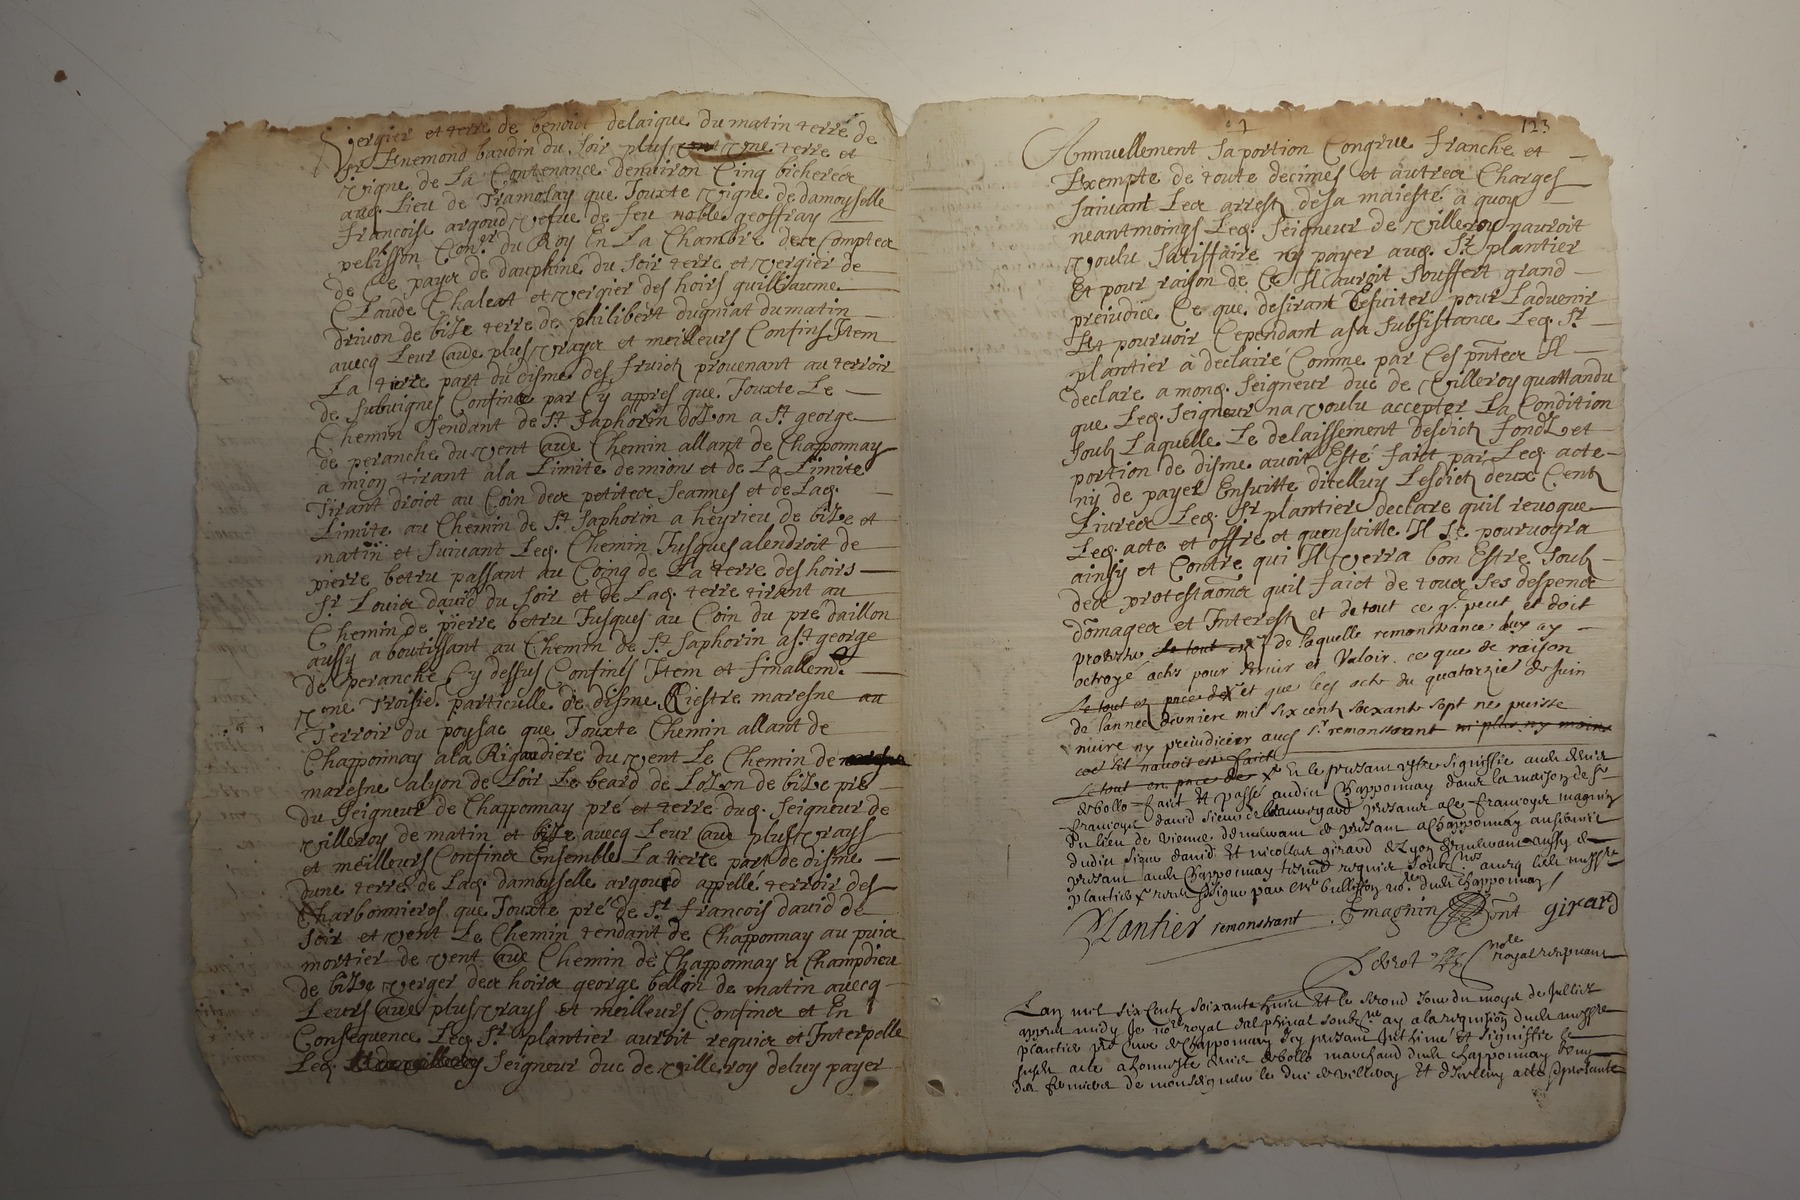 vergier et terre de benoict delaigue du matin terre de
Sr Ennemond baudin du soir plus une terre et
vigne de La Contenance denviron Cinq bicherees
aud. Lieu de Tramolay que Jouxte vigne de damoyselle
francoise argoud vefue de feu noble geoffray
pelisson Coner du Roy En La Chambre des Comptes
de ce paya de dauphiné du soir terre et vergier de
Claude Chaleat et vergier des hoirs guilliaume
drivon de bize terre de philibert dugniat du matin
avecq Leur aude plus vrays et meilleurs Confins Item
La tierre part du disme des fruich provenant au terroir
de Subvignes Confiné par Cy appres que Jouxte Le
Chemin tendant de St Saphorin dozon a St george
de peranche du vent aude Chemin allant de Chapponnay
a mion tirant a la Limite de mions et de La Limite
Tirant droict au Coin des petites Jeannes et de Lad.
Limite au Chemin de St Saphorin a heyrieu de bize et
matin et suivant Led. Chemin Jusques alendroit de
pierre betru passant au Coing de La terre des hoirs
Sr Louis david du soir et de Lad. terre tirant au
Chemin de pierre betru Jusques au Coin du pré daillon
aussy aboutissant au Chemin de St Saphorin a St george
de peranche Cy dessus Confines Item et finallemt
une Troisie. particulle de disme Riestre maresne au
Terroir du poysac que Jouxte Chemin allant de
Chapponnay a la Rigaudiere du vent Le Chemin de
maresne alyon de soir Le beard de Lozon de bize pré
du Seigneur de Chapponnay pré et terre dud. Seigneur de
villeroy de matin et bize avecq Leur aude plus vrays
et meilleurs Confins Ensemble La tierce part de disme
dune terre de Lad. damoyselle argoud appellé terroir des
Charbonnieres que Jouxte pré de Sr francois david de
soir et vent Le Chemin tendant de Chapponnay au puis
mortier de vent aude Chemin de Chapponnay a Champdieu
de bize verger des hoirs george bellin de matin avecq
Leurs aude plus vrays et meilleurs Confins et En
Consequence Led. Sr plantier auroit requis et Interpelle
Led. Seigneur duc de villeroy deluy payer
123
Annuellement sa portion Congrue franche et
Exempte de toute decimes et autres Charges
suivant Les arrests de sa maiesté a quoy
neantmoings Led. Seigneur de villeroy nauroit
voulu satiffaire ny payer aud. Sr plantier
Et pour raison de Ce Il auroit souffert grand
preiudice Ce que desirant Esviter pour Ladvenir
Et pourvoir Cependant a sa subsistance Led. Sr
plantier a declairé Comme par Ces pntes Il
declare a mond. Seigneur duc de villeroy quattandu
que Led. Seigneur na voulu accepter La Condition
soub Laquelle Le delaissement desdich fondz et
portion de disme avoit Esté faict par Led. acte
ny de payer Ensuitte dicelluy Lesdich deux Cent
Livres Led. Sr plantier declare quil revoque
Led. acte et offre et quensuitte Il se pourvoyra
ainsy et Contre qui Il verra bon Estre soub
des protestaons quil faict de tous ses despens
domages et Interest et de tout ce q. peut et doit
proteste Le tout de laquelle remonstrance luy ay
octroyé acte pour servir et valoir ce que de raison
Le tout et que led acte du quatorzie de Juin
de lannée derniere mil six cent soixante sept ne puisse
nuire ny preiudicier aud sr remonstrant ni plus ny moins
que sil navoit esté faict
Le tout Et le presant estre signiffie aude
debollo faict Et passé audit Chapponnay dans la maison de sr
francoys david sieur de beauregard presans a ce francoys magnin
du lieu de vienne demeurant de presant a Chapponnay
dudit signe david Et nicollas girard de Lyon demeurant aussy de
presant aude Chapponnay tesmoins requis soubnes avecq led messre
plantier
Plantier remonstrant Fmagnin pnt girard
nore royal
Lan mil six cent soixante huit Et le second jour du moys de Juillet
appres midy Je nore royal dalphinal soubne ay a la requision dude messre
plantier pre cure de Chapponnay icy presant Inthimé et signiffié le
susd. acte a honneste debollo marchand dude Chapponnay
des fermiers de monseigneur le duc de villeroy Et dicelluy acte